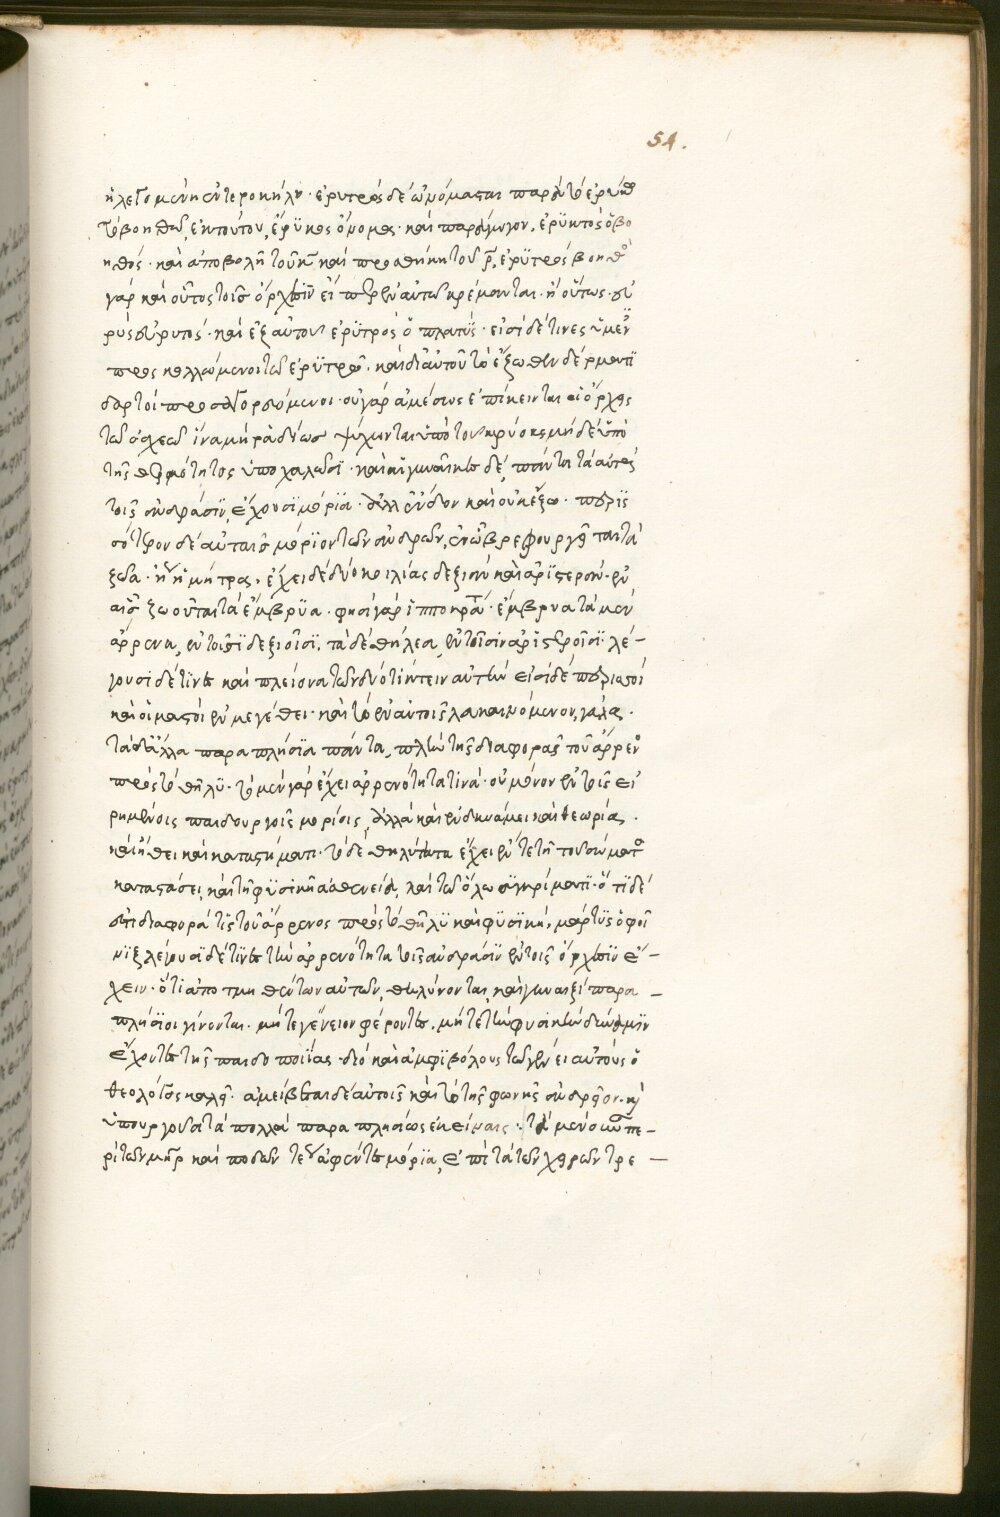 54.
ἡ λεγομένη ἐντεροκήλη· ἐρυτρὸς δὲ ὠνόμασται παρὰ τὸ
τὸ βοηθῶ, ἐκ τούτου, ὄνομα· καὶ
καὶ ἀποβολῇ τοῦ κ καὶ προσθήκῃ τοῦ ρ, ἐρυτρὸς
γάρ καὶ οὗτος τοῖς ὄρχεσιν εἴπερ ἐν αὐτῷ κρέμανται· ἢ οὕτως·
καὶ ἐξ αὐτοῦ ἐρυτρὸς ὁ πλατύς· εἰσὶ δέ τινες ὑμένες
προσκολλώμενοι τῷ ἐρυτρῷ· καὶ δι' αὐτοῦ τὸ ἔξωθεν δέρματι
δαρτοὶ προσαγορευόμενοι· οὐ γὰρ ἀμέσως ἐπίκεινται οἱ ὄρχεις
τῷ ὀσχέῳ ἵνα μὴ ῥαδίως ψύχωνται ὑπὸ τοῦ κρύους μηδὲ ὑπὸ
τῆς θερμότητος ὑποχαλῶσι· καὶ αἱ γυναῖκες δέ, πάντα τὰ αὐτὰ
τοῖς ἀνδράσιν, ἔχουσι μόρια· ἀλλ' ἔνδον καὶ οὐκ ἔξω· περισ
σότερον δὲ αὐταῖς μόριον τῶν ἀνδρῶν, ἐν ᾧ βρεφουργεῖται τὰ
ζῶα· ἡ μήτρα· ἔχει δὲ δύο κοιλίας δεξιὰν καὶ ἀριστεράν· ἐν
αἷς ζωοῦται τὰ ἔμβρυα· φησὶ γὰρ ἱπποκράτης· ἔμβρυα τὰ μὲν
ἄρρενα, ἐν τοῖσι δεξιοῖσι, τὰ δὲ θήλεα, ἐν τοῖσιν ἀριστεροῖσι· λέ-
γουσι δέ τινες καὶ πλείονα τῶν δύο τίκτειν αὐτὴν εἰσὶ δὲ περισσοὶ
καὶ οἱ μαστοὶ ἐν μεγέθει· καὶ τὸ ἐν αὐτοῖς λακκαινόμενον, γάλα·
τὰ δ' ἄλλα παραπλήσια πάντα, πλὴν τῆς διαφορᾶς τοῦ ἄρρενος
πρὸς τὸ θῆλυ· τὸ μὲν γὰρ ἔχει ἀρρενότητα τινά· οὐ μόνον ἐν τοῖς εἰ
ρημένοις παιδουργοῖς μορίοις, ἀλλὰ καὶ ἐν δυνάμει καὶ θεωρίᾳ·
καὶ ἤθει καὶ καταστήματι· τὸ δὲ θηλύτητα ἔχει ἐν τε τῇ τοῦ σώματος
καταστάσει, καὶ τῇ φυσικῇ ἀσθενείᾳ, καὶ τῷ ὅλῳ συγκρίματι· ὅτι δέ
ἐστι διαφορά τις τοῦ ἄρρενος πρὸς τὸ θῆλυ καὶ φυσική, μάρτυς ὁ φοῖ
νιξ λέγουσι δέ τινες τὴν ἀρρενότητα τοῖς ἀνδράσιν ἐν τοῖς ὄρχεσιν ἔ-
χειν· ὅτι ἀποτμηθέντων αὐτῶν, θηλύνονται, καὶ γυναιξὶ παρα-
πλήσιοι γίνονται· μήτε γένειον φέροντες, μήτε τὴν φυσικὴν δύναμιν
ἔχοντες τῆς παιδοποιίας· διὸ καὶ ἀμφιβόλους τῷ γένει αὐτοὺς ὁ
θεολόγος καλεῖ· ἀμείβεται δὲ αὐτοῖς καὶ τὸ τῆς φωνῆς ἀνδρεῖον· καὶ
ὑπουργοῦσι τὰ πολλὰ παραπλησίως ἐκείναις· τὰ μὲν οὖν πε-
ρὶ τῶν μηρῶν καὶ ποδῶν τε ἀφέντες μόρια, ἐπὶ τὰ τῶν χειρῶν τρε-